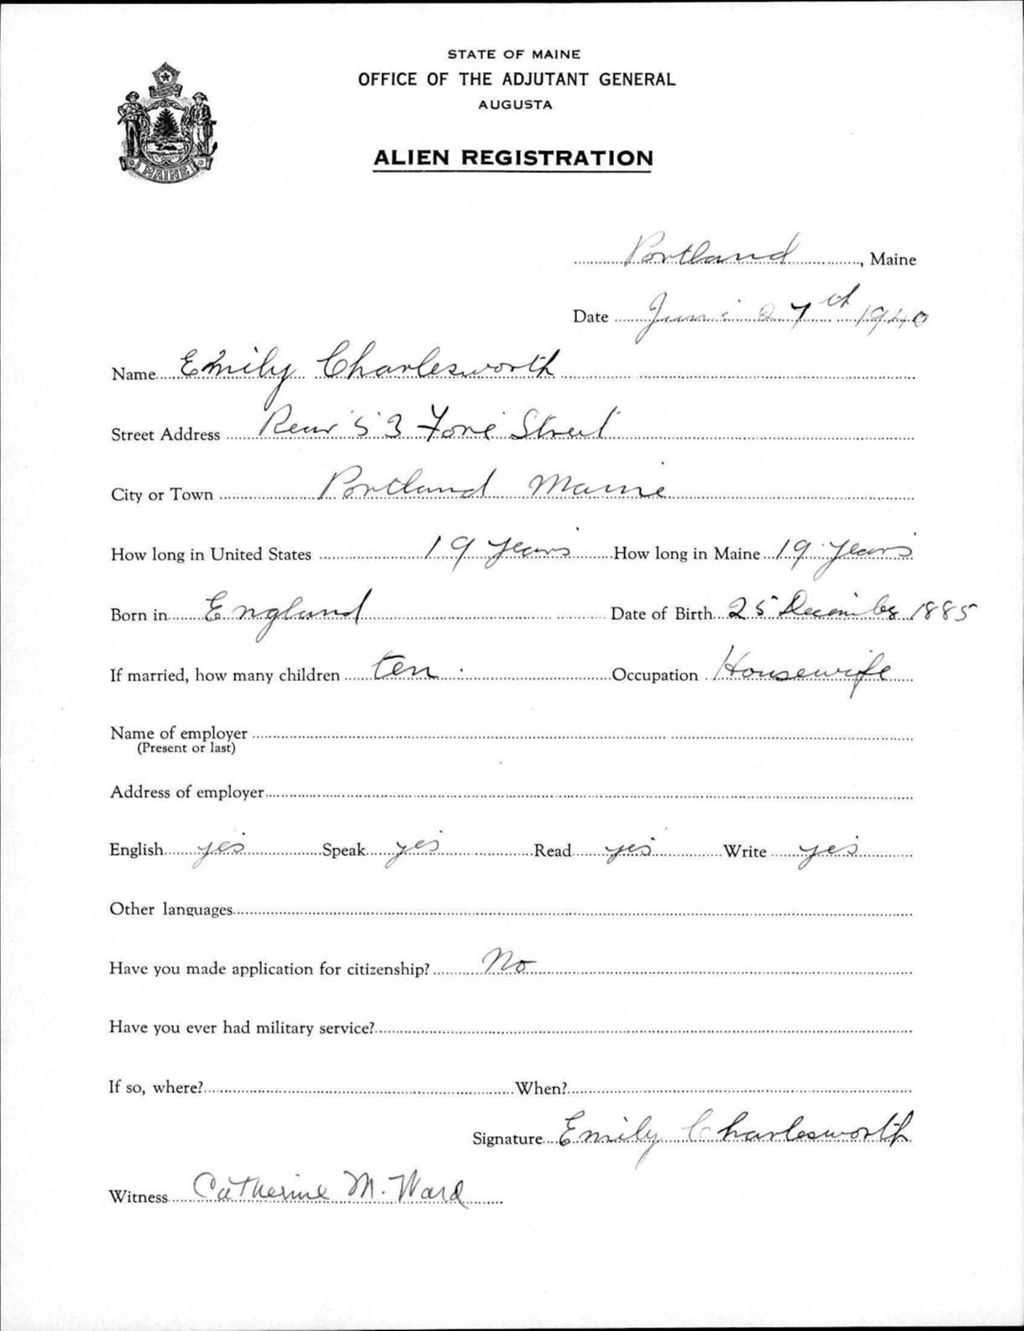 STATE OF MAINE
OFFICE OF THE ADJUTANT GENERAL
AUGUSTA
ALIEN REGISTRATION
MAINE
Portland, Maine
Date June 27th 1940
Name Emily Charlesworth
Street Address Rear 53 Fore Street
City or Town Portland Maine
How long in United States 19 years How long in Maine 19 years
Born in England Date of Birth 25 December 1885
If married, how many children ten Occupation Housewife
Name of employer
(Present or last)
Address of employer
English yes Speak yes Read yes Write yes
Other languages
Have you made application for citizenship? No
Have you ever had military service?
If so, where? When?
Signature Emily Charlesworth
Witness Catherine M. Ward